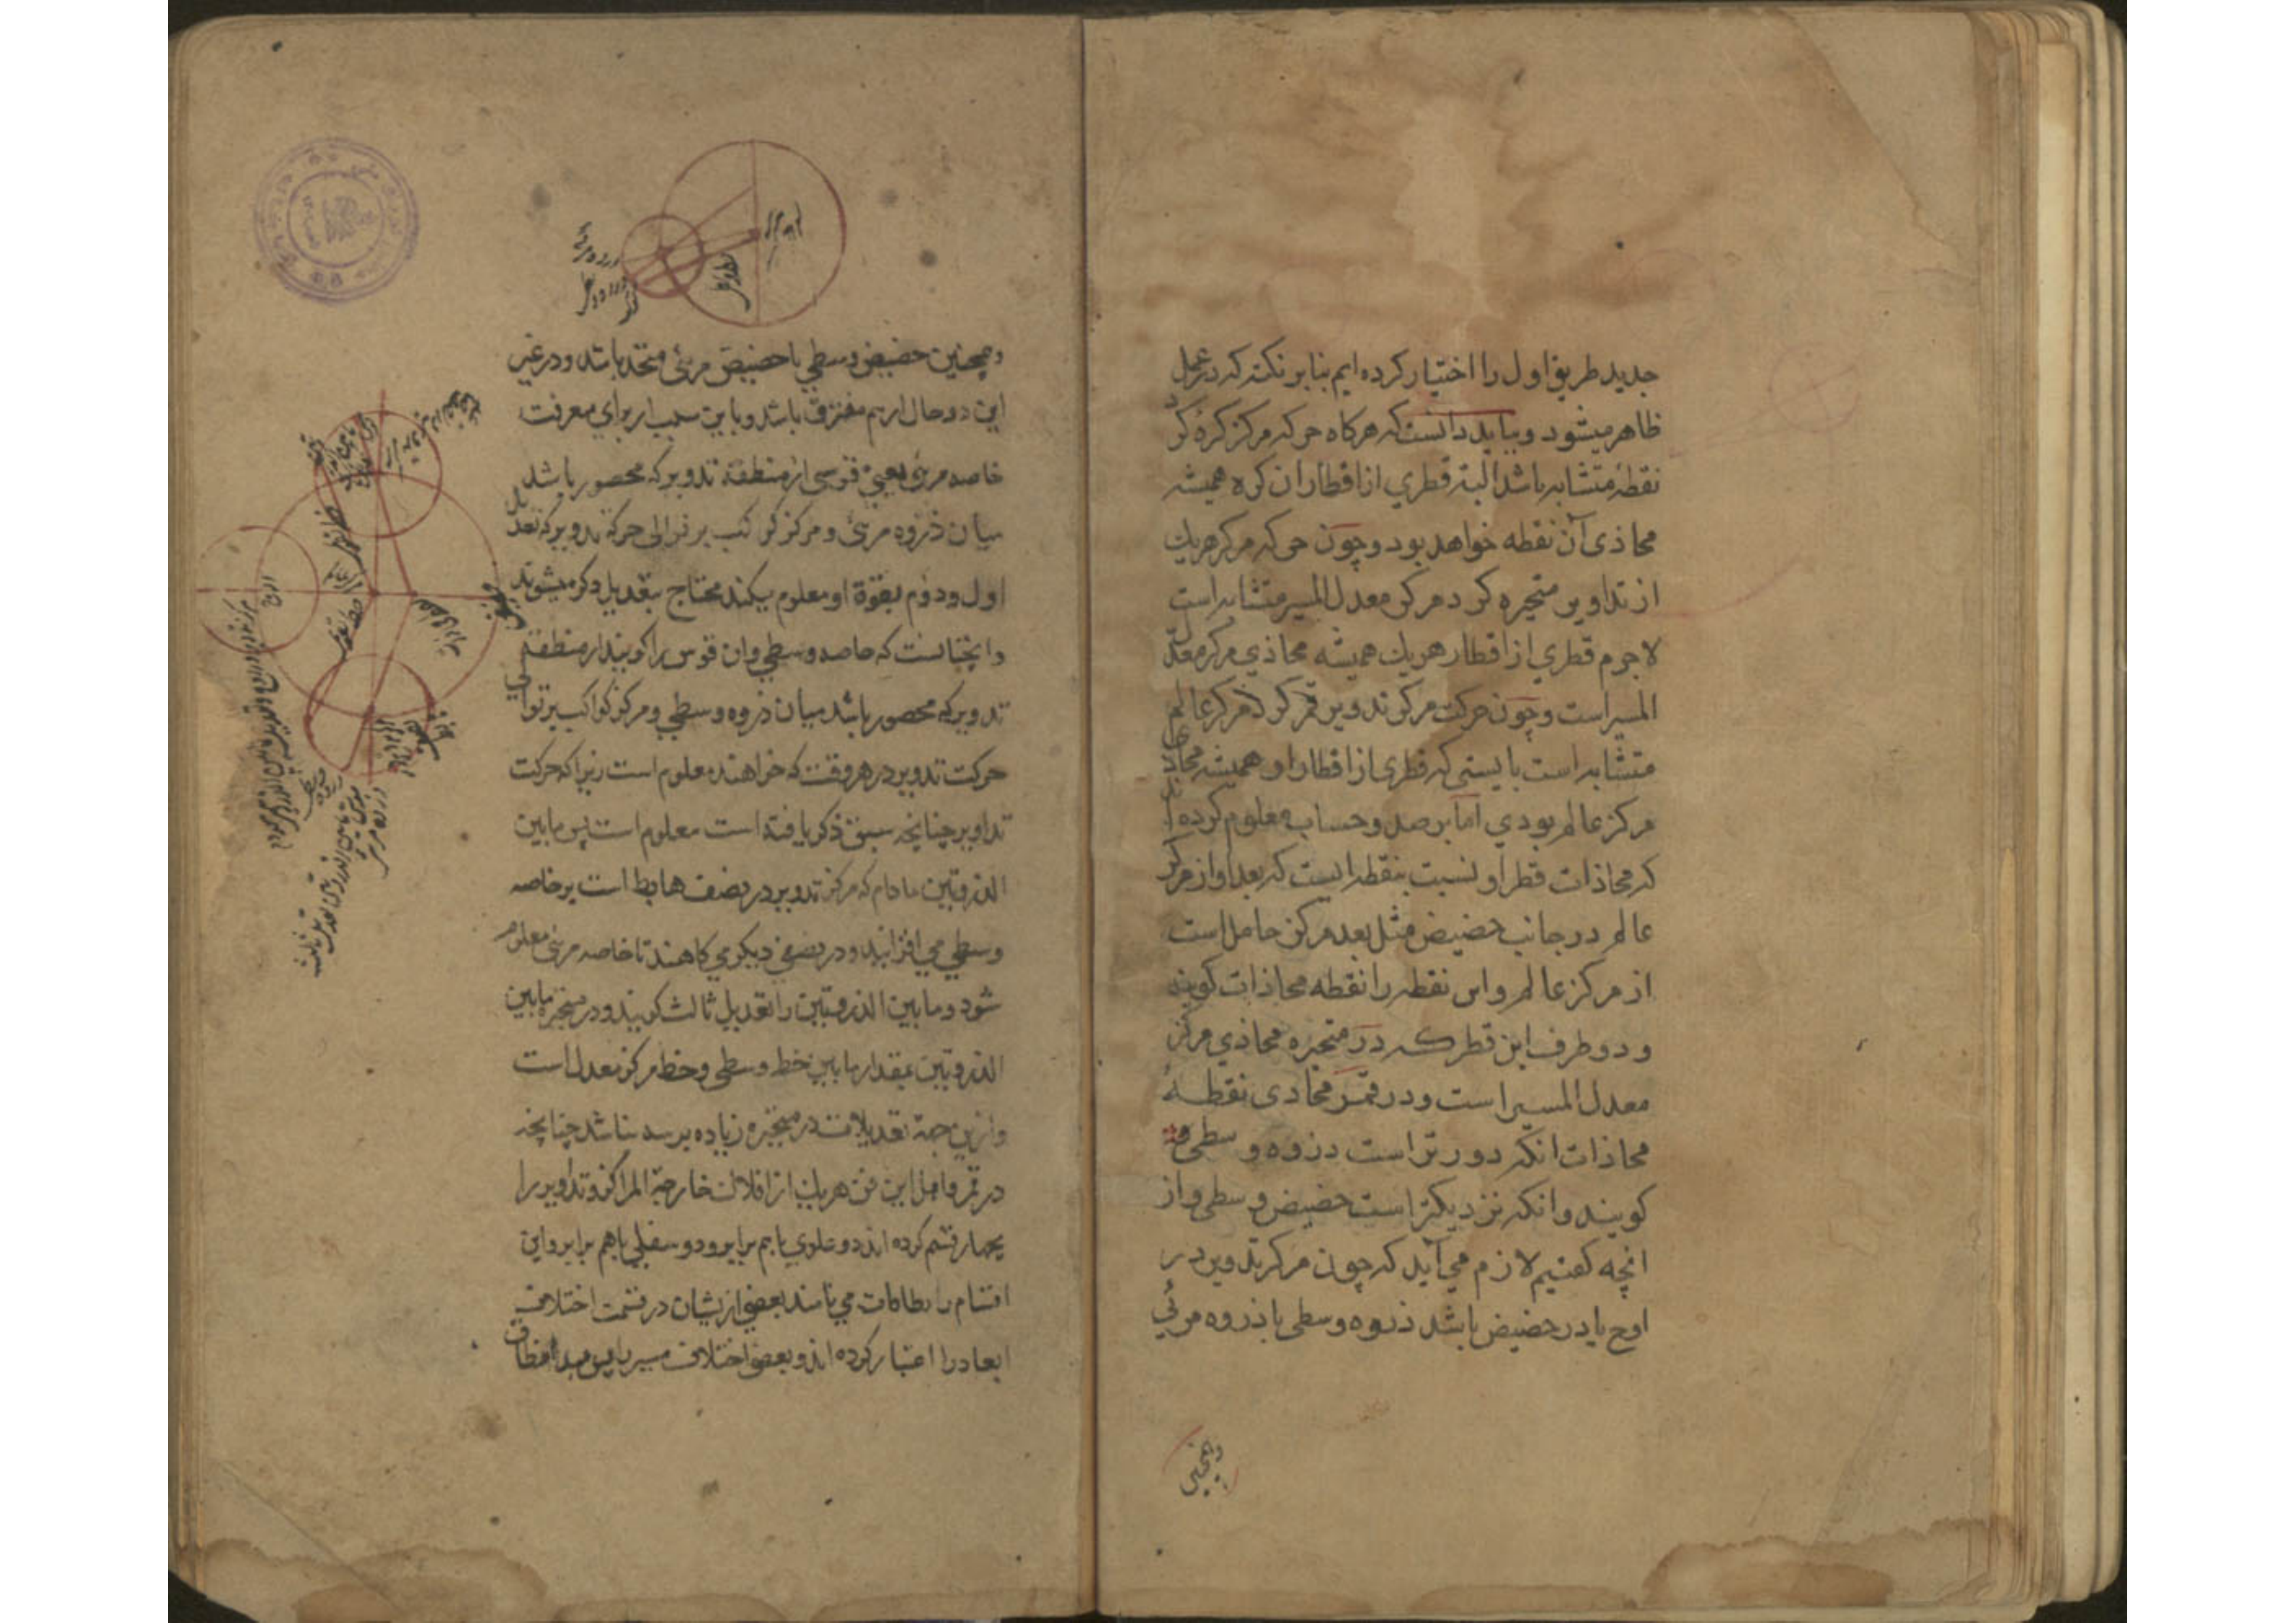 جدید طریق اول را اختیار کرده ایم بنابر نکته که در عمل
ظاهر میشود و بباید دانست که هرکاه حرکه مرکز کرهٔ کرد
نقطهٔ متشابه باشد البته قطری از اقطار ان کره همیشه
محاذی آن نقطه خواهد بود و چون حرکه مرکز هریك
از تداویر متحیره کرد مرکز معدل المسیر متشابه است
لاجرم قطری از اقطار هریك همیشه محاذی مرکز معدل
المسیر است و چون حرکت مرکز تدویر قمر کرد مرکز عالم
متشابه است بایستی که قطری از اقطار او همیشه محاذی
مرکز عالم بودی اما برصد و حساب معلوم کرده اند
که محاذات قطر او نسبت بنقطه ایست که بعد او از مرکز
عالم در جانب حضیض مثل بعد مرکز حامل است
از مرکز عالم و این نقطه را نقطه محاذات کویند
و دو طرف این قطر که در متحیره محاذی مرکز
معدل المسیر است و در قمر محاذی نقطهٔ
محاذات انکه دورتر است ذروه وسطی
کویند و انکه نزدیکتر است حضیض وسطی و از
انچه کفتیم لازم می آید که چون مرکز تدویر در
اوج یا در حضیض باشد ذروه وسطی با ذروه مرئی
وهمچنین
وهمچنین حضیض وسطی با حضیض مرئی متحد باشد و در غیر
این دو حال از هم مفترق باشد و باین سبب از برای معرفت
خاصه مرئی یعنی قوسی از منطقه تدویر که محصور باشد
میان ذروه مرئی و مرکز کوکب بر توالی حرکه تدویر که تعدیل
اول و دوم بقوة او معلوم میکند محتاج بتعدیل دکر میشوند
وانچنانست که خاصه وسطی و ان قوس را کویند از منطقه
تدویر که محصور باشد میان ذروه وسطی و مرکز کواکب بر توالی
حرکت تدویر در هر وقت که خواهند معلوم است زیرا که حرکت
تداویر چنانچه سبق ذکر یافته است معلوم است پس مابین
الذروتین مادام که مرکز تدویر در نصف هابط است بر خاصه
وسطی می افزایند و در نصفی دیکر می کاهند تا خاصه مرئی معلوم
شود و مابین الذروتین را تعدیل ثالث کویند و در متحیره مابین
الذروتین بمقدار مابین خط وسطی و خط مرکز معدل است
وازین جهة تعدیلات در متحیره زیاده بر سه نباشد چنانچه
در قمر و اهل این فن هریك از افلاك خارجة المراکز و تداویر را
بچهار قسم کرده اند دو علوی باهم برابر و دو سفلی باهم برابر و این
اقسام را نطاقات می نامند بعضی ازیشان در قسمت اختلاف
ابعاد را اعتبار کرده اند و بعضی اختلاف مسیر را پس مبدأ نطاق